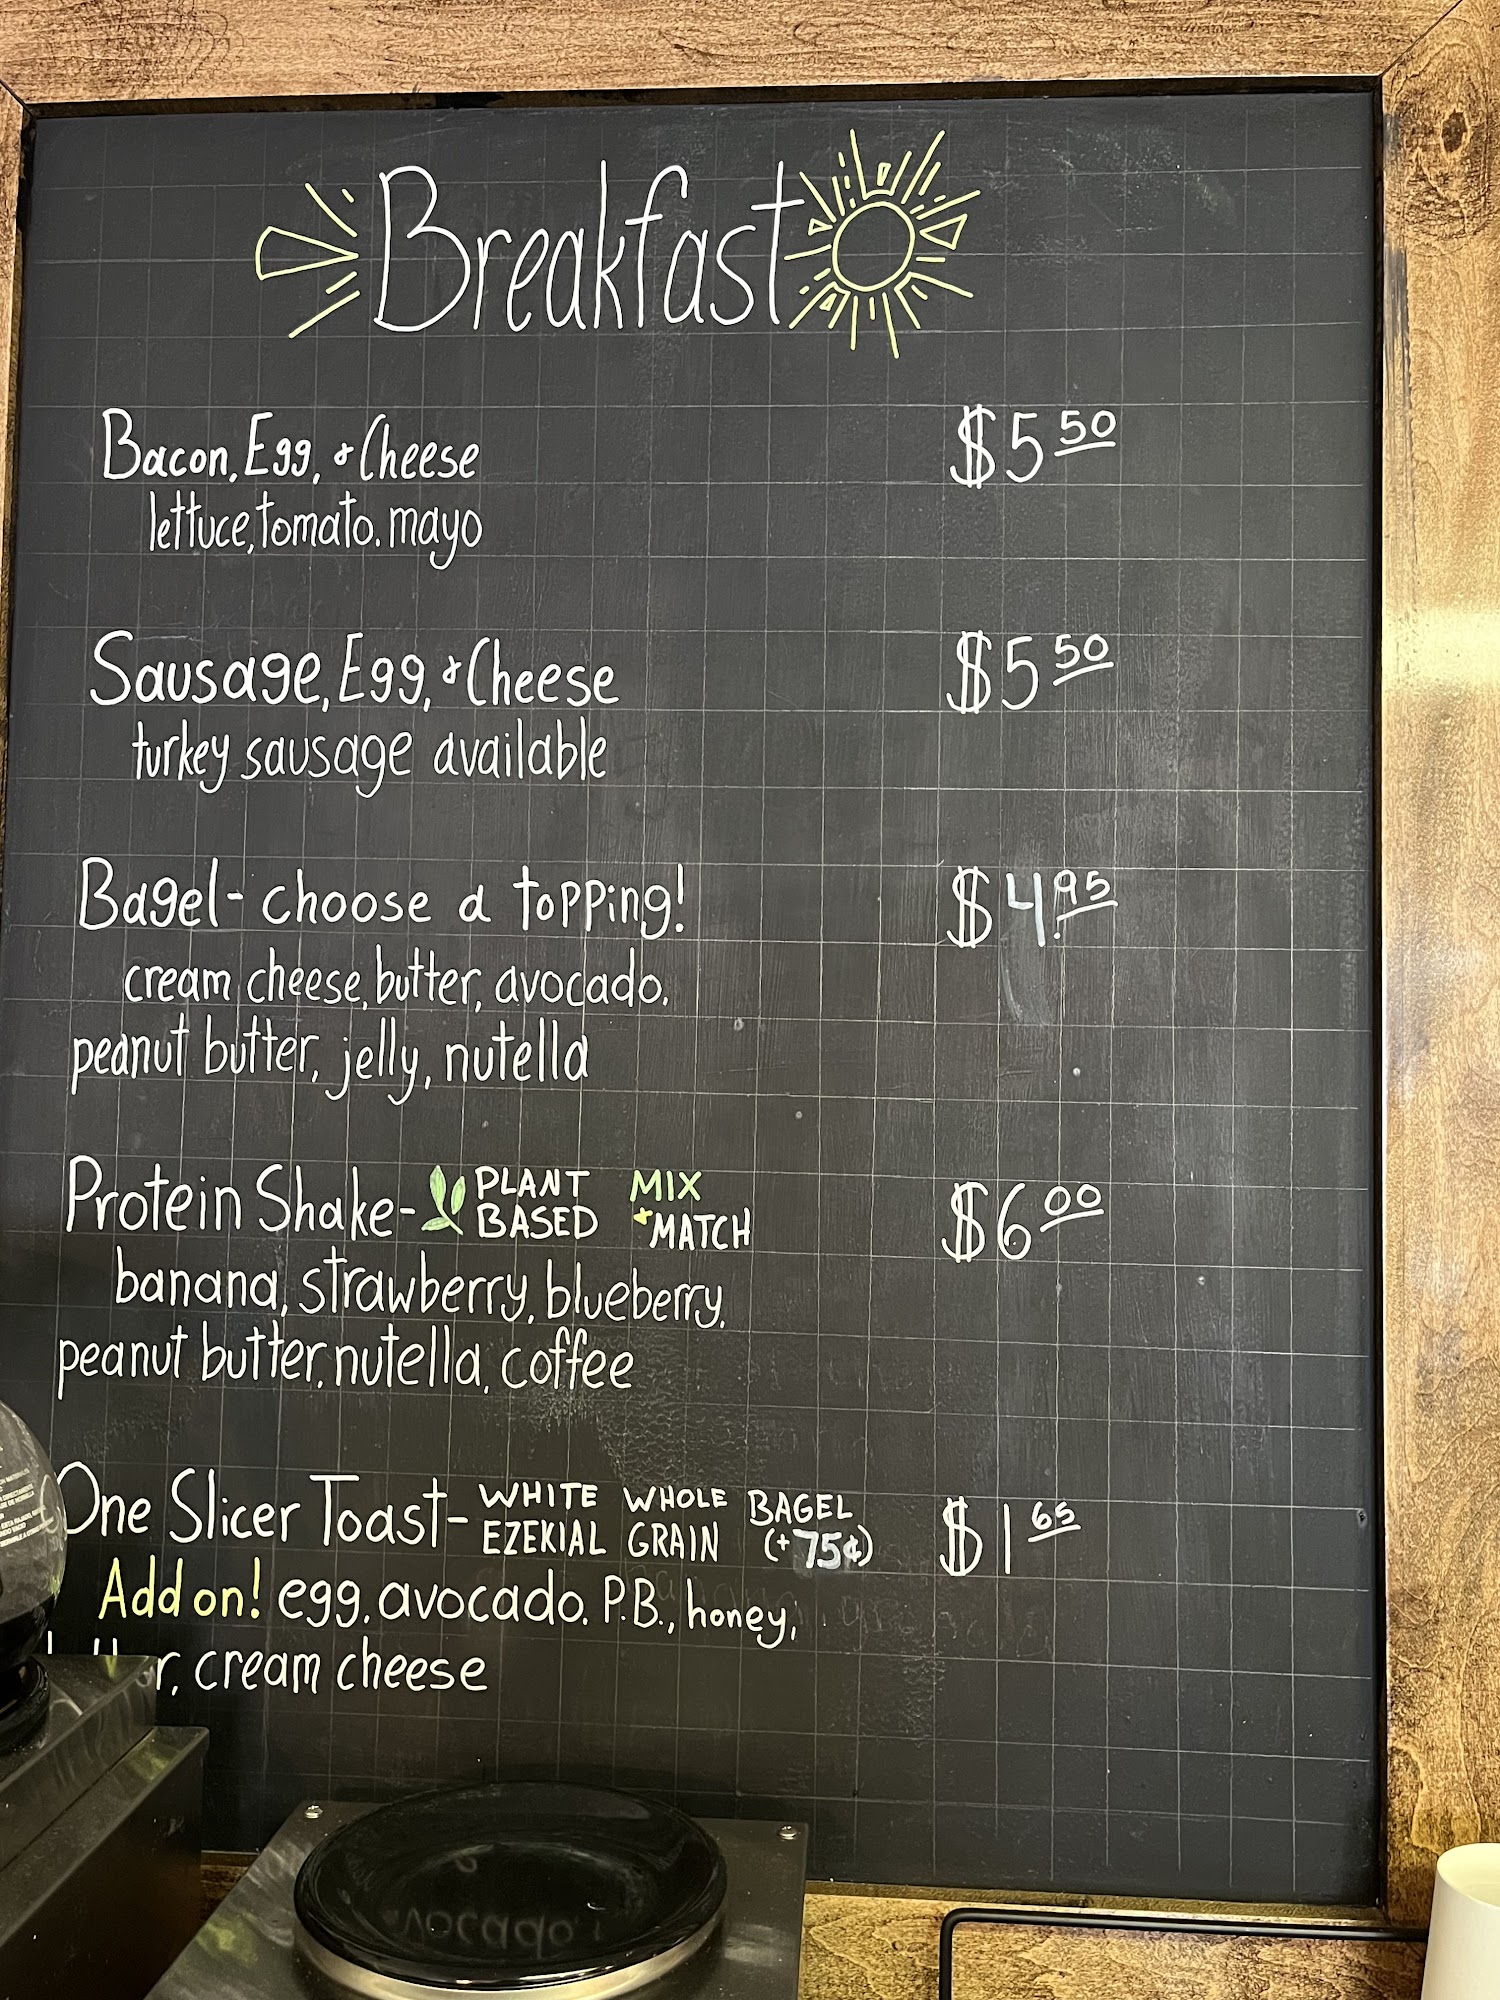 Breakfast
Bacon, Egg, & Cheese $5 50
lettuce, tomato, mayo
Sausage, Egg, & Cheese $5 50
turkey sausage available
Bagel - choose a topping! $4.95
cream cheese, butter, avocado,
peanut butter, jelly, nutella
Protein Shake - PLANT BASED MIX + MATCH $6 00
banana, strawberry, blueberry,
peanut butter, nutella, coffee
One Slicer Toast - WHITE WHOLE BAGEL $1 65
EZEKIAL GRAIN (+75¢)
Add on! egg, avocado, P.B., honey,
cream cheese